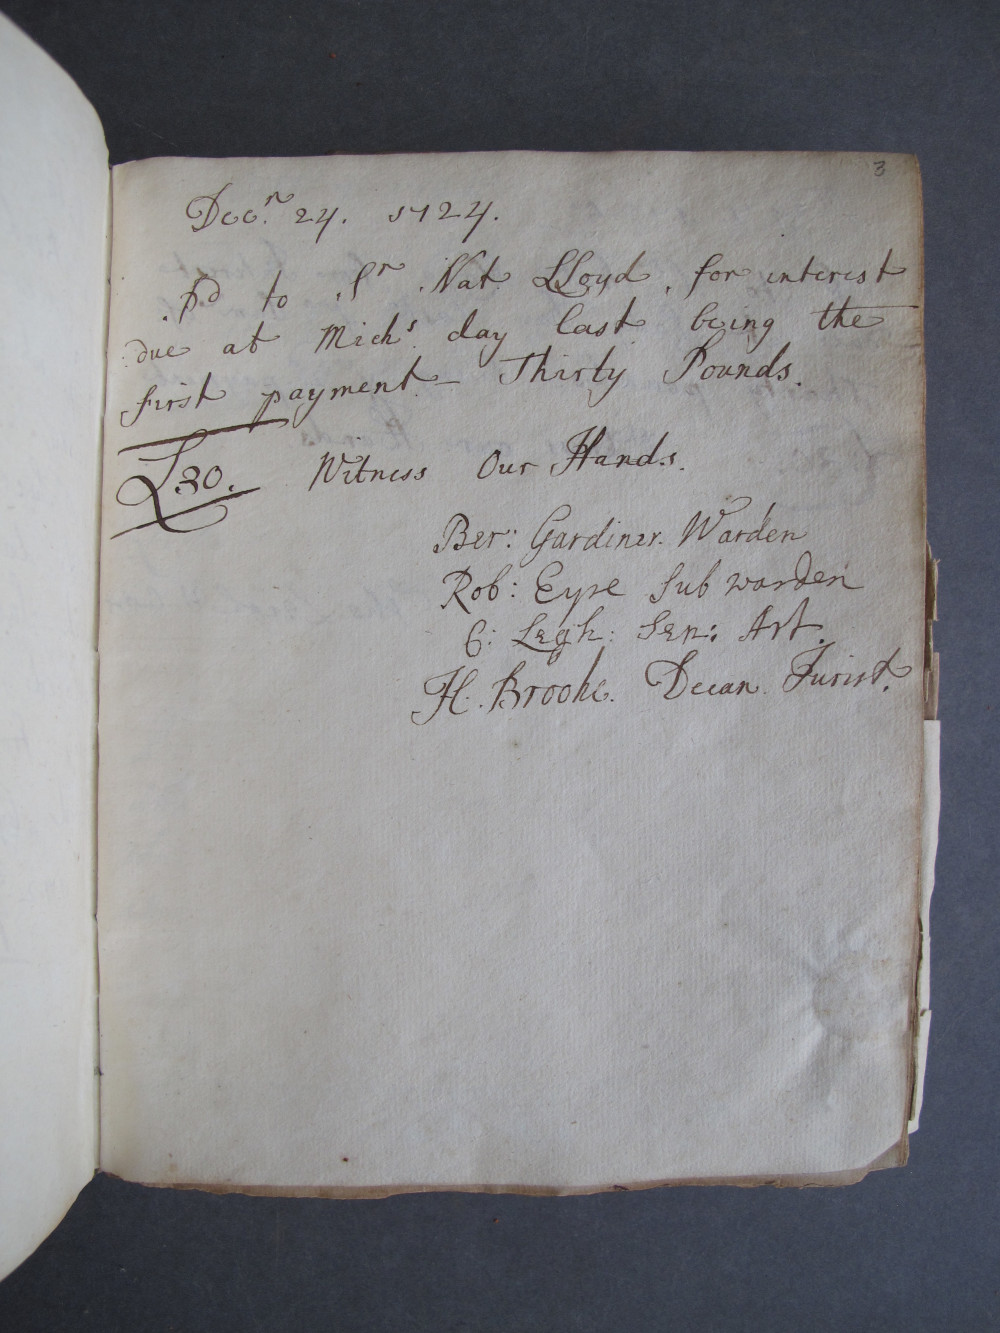 3
Decr. 24. 1724.
Pd to Sr Nat. LLoyd, for interest
due at Michs. day last being the
first payment – Thirty Pounds.
£30. Witness Our Hands.
Ber: Gardiner. Warden
Rob: Eyre Sub warden
C: Legh: Sen: Art.
H. Brooke. Decan. Jurist.